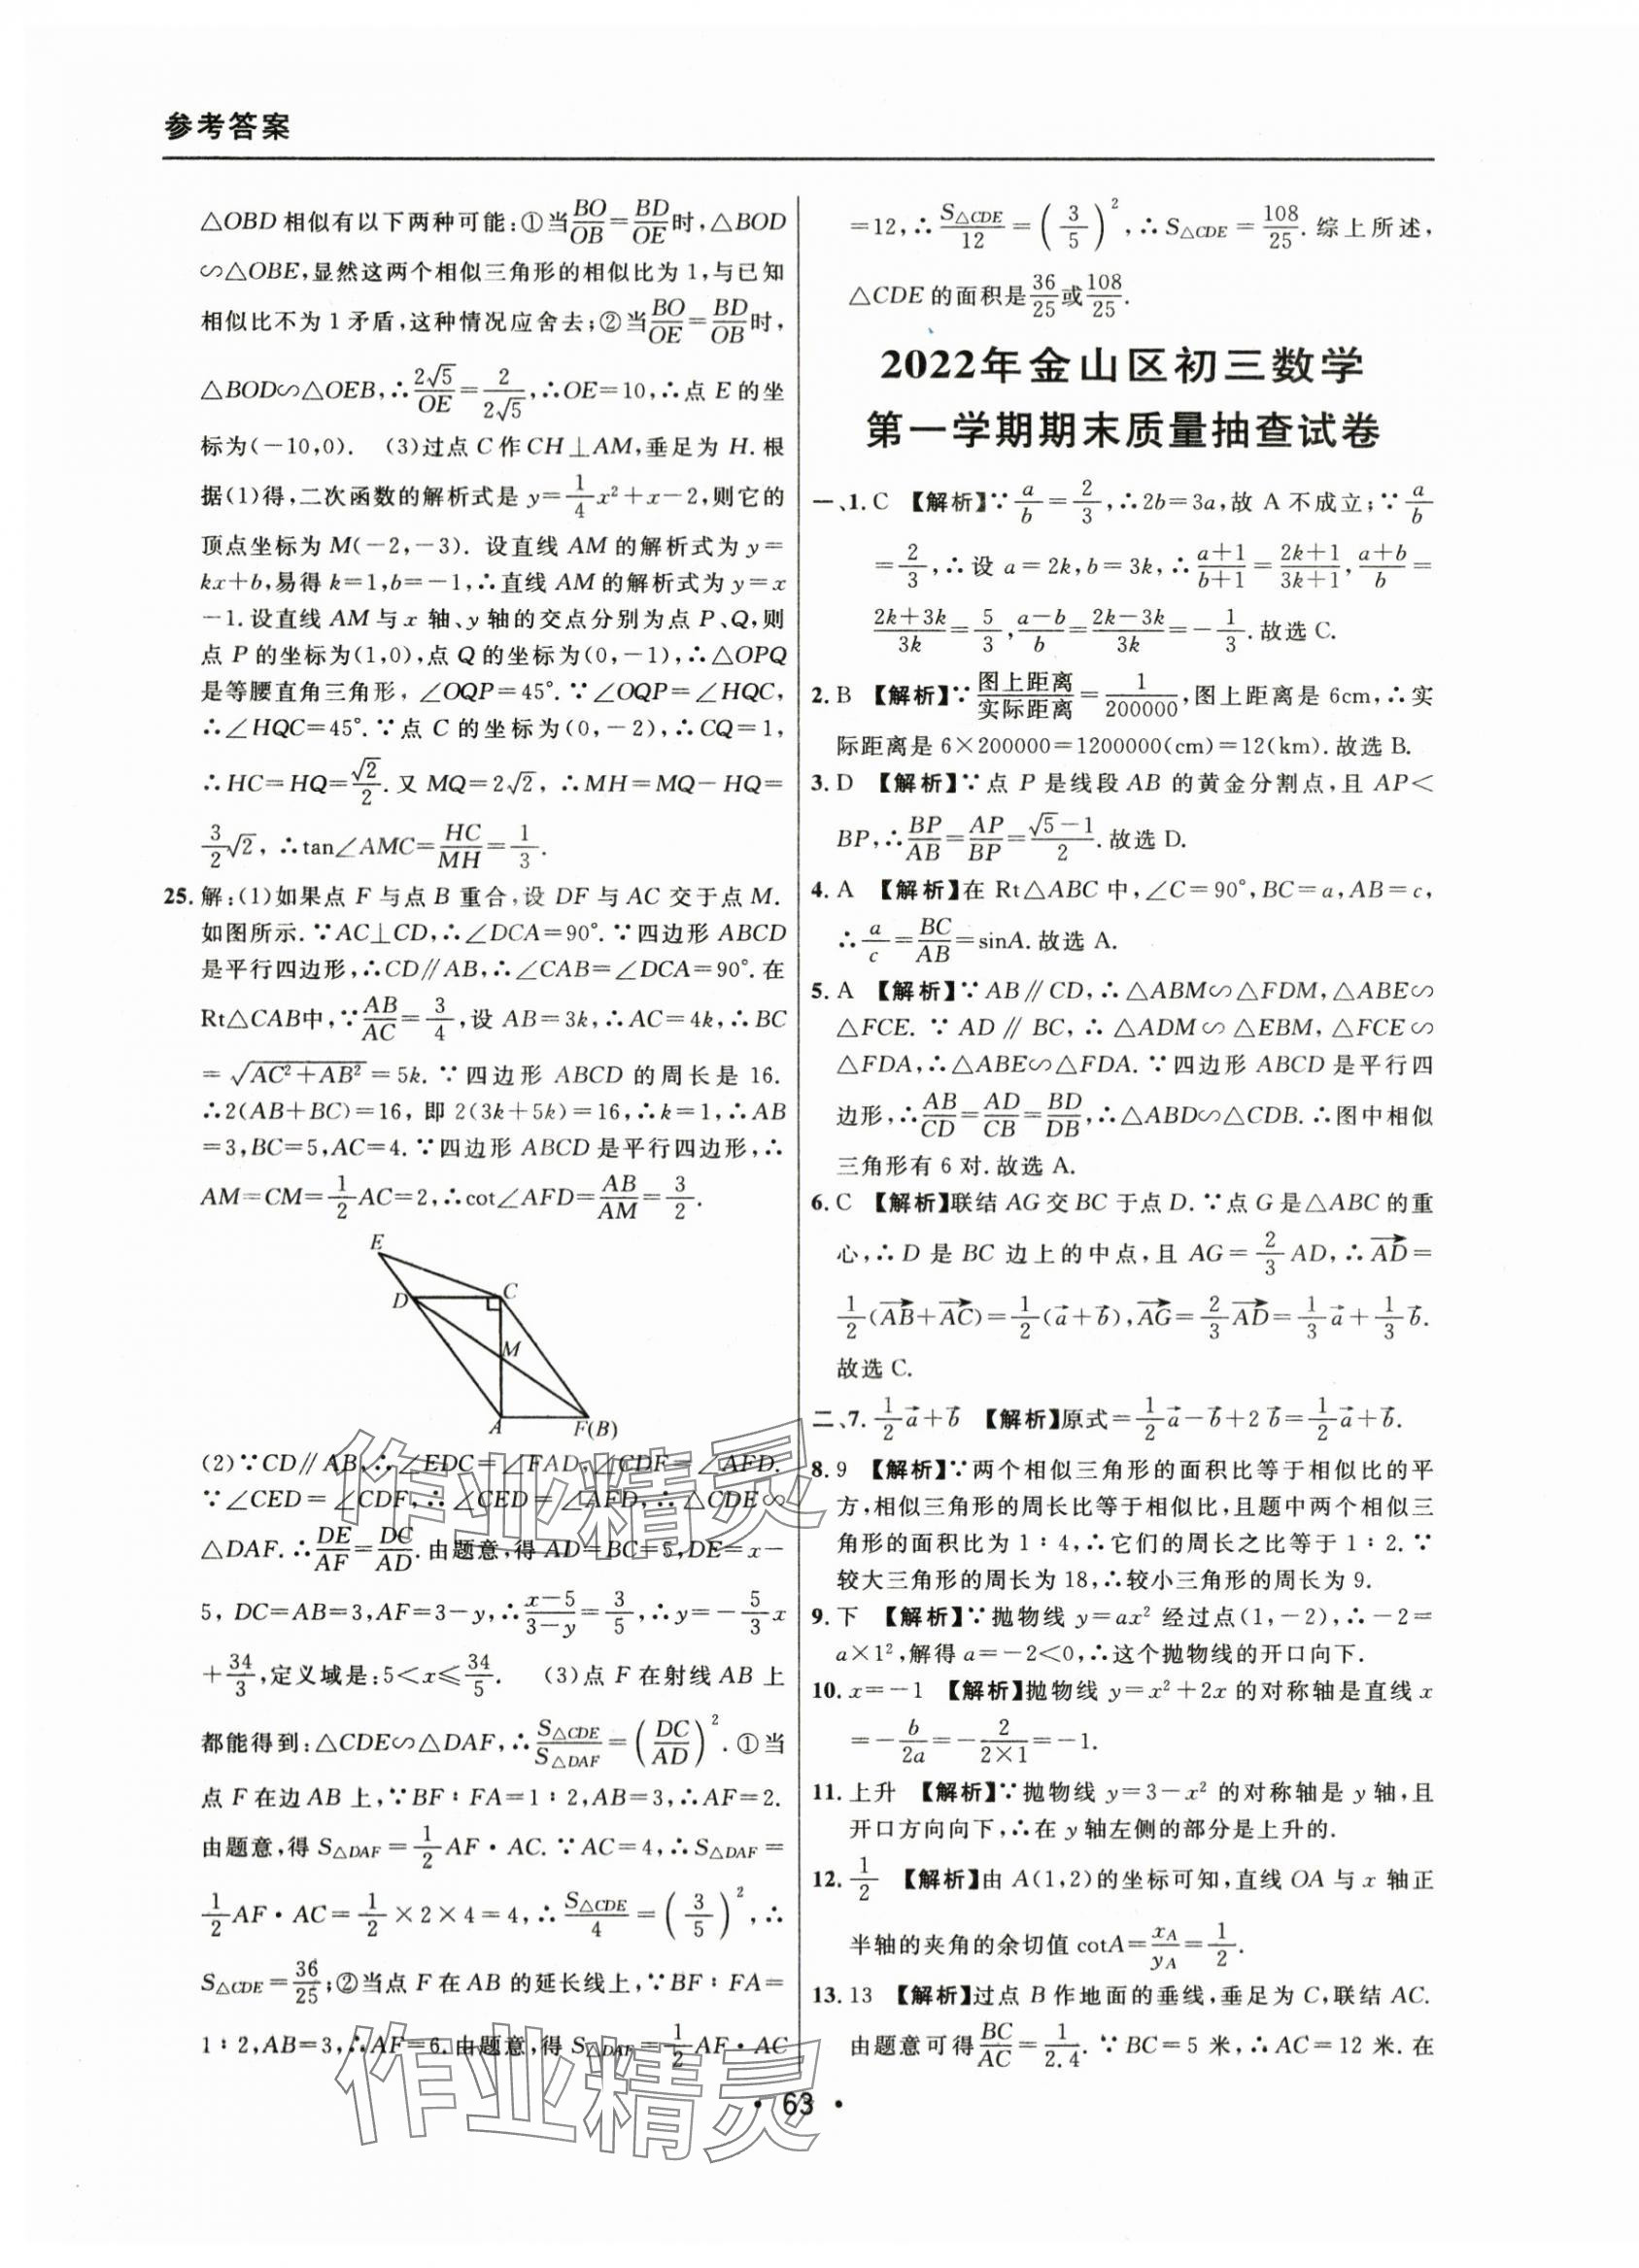 参考答案
△OBD相似有以下两种可能:①当BO/OB=BD/OE时,△BOD
∽△OBE,显然这两个相似三角形的相似比为1,与已知
相似比不为1矛盾,这种情况应舍去;②当BO/OE=BD/OB时,
△BOD∽△OEB,∴2√5/OE=2/(2√5),∴OE=10,∴点E的坐
标为(-10,0). (3)过点C作CH⊥AM,垂足为H.根
据(1)得,二次函数的解析式是y=1/4x²+x-2,则它的
顶点坐标为M(-2,-3). 设直线AM的解析式为y=
kx+b,易得k=1,b=-1,∴直线AM的解析式为y=x
-1.设直线AM与x轴、y轴的交点分别为点P、Q,则
点P的坐标为(1,0),点Q的坐标为(0,-1),∴△OPQ
是等腰直角三角形,∠OQP=45°.∵∠OQP=∠HQC,
∴∠HQC=45°.∵点C的坐标为(0,-2),∴CQ=1,
∴HC=HQ=√2/2.又MQ=2√2,∴MH=MQ-HQ=
3/2√2,∴tan∠AMC=HC/MH=1/3.
25.解:(1)如果点F与点B重合,设DF与AC交于点M.
如图所示.∵AC⊥CD,∴∠DCA=90°.∵四边形ABCD
是平行四边形,∴CD∥AB,∴∠CAB=∠DCA=90°.在
Rt△CAB中,∵AB/AC=3/4,设AB=3k,∴AC=4k,∴BC
=√(AC²+AB²)=5k.∵四边形ABCD的周长是16.
∴2(AB+BC)=16,即2(3k+5k)=16,∴k=1,∴AB
=3,BC=5,AC=4.∵四边形ABCD是平行四边形,∴
AM=CM=1/2AC=2,∴cot∠AFD=AB/AM=3/2.
E
D
C
M
A
F(B)
(2)∵CD∥AB,∴∠EDC=∠FAD,∠CDF=∠AFD.
∵∠CED=∠CDF,∴∠CED=∠AFD,∴△CDE∽
△DAF.∴DE/AF=DC/AD.由题意,得AD=BC=5,DE=x-
5,DC=AB=3,AF=3-y,∴(x-5)/(3-y)=3/5,∴y=-5/3x
+34/3,定义域是:5<x≤34/5. (3)点F在射线AB上
都能得到:△CDE∽△DAF,∴S△CDE/S△DAF=(DC/AD)².①当
点F在边AB上,∵BF∶FA=1∶2,AB=3,∴AF=2.
由题意,得S△DAF=1/2AF·AC.∵AC=4,∴S△DAF=
1/2AF·AC=1/2×2×4=4,∴S△CDE/4=(3/5)²,∴
S△CDE=36/25;②当点F在AB的延长线上,∵BF∶FA=
1∶2,AB=3,∴AF=6.由题意,得S△DAF=1/2AF·AC
=12,∴S△CDE/12=(3/5)²,∴S△CDE=108/25.综上所述,
△CDE的面积是36/25或108/25.
2022年金山区初三数学
第一学期期末质量抽查试卷
一、1.C 【解析】∵a/b=2/3,∴2b=3a,故A不成立;∵a/b
=2/3,∴设a=2k,b=3k,∴(a+1)/(b+1)=(2k+1)/(3k+1),(a+b)/b=
(2k+3k)/3k=5/3,(a-b)/b=(2k-3k)/3k=-1/3.故选C.
2.B 【解析】∵图上距离/实际距离=1/200000,图上距离是6cm,∴实
际距离是6×200000=1200000(cm)=12(km).故选B.
3.D 【解析】∵点P是线段AB的黄金分割点,且AP<
BP,∴BP/AB=AP/BP=(√5-1)/2.故选D.
4.A 【解析】在Rt△ABC中,∠C=90°,BC=a,AB=c,
∴a/c=BC/AB=sinA.故选A.
5.A 【解析】∵AB∥CD,∴△ABM∽△FDM,△ABE∽
△FCE.∵AD∥BC,∴△ADM∽△EBM,△FCE∽
△FDA,∴△ABE∽△FDA.∵四边形ABCD是平行四
边形,∴AB/CD=AD/CB=BD/DB,∴△ABD∽△CDB.∴图中相似
三角形有6对.故选A.
6.C 【解析】联结AG交BC于点D.∵点G是△ABC的重
心,∴D是BC边上的中点,且AG=2/3AD,∴AD→=
1/2(AB→+AC→)=1/2(a→+b→),AG→=2/3AD→=1/3a→+1/3b→.
故选C.
二、7.1/2a→+b→ 【解析】原式=1/2a→-b→+2b→=1/2a→+b→.
8.9 【解析】∵两个相似三角形的面积比等于相似比的平
方,相似三角形的周长比等于相似比,且题中两个相似三
角形的面积比为1∶4,∴它们的周长之比等于1∶2.∵
较大三角形的周长为18,∴较小三角形的周长为9.
9.下 【解析】∵抛物线y=ax²经过点(1,-2),∴-2=
a×1²,解得a=-2<0,∴这个抛物线的开口向下.
10.x=-1 【解析】抛物线y=x²+2x的对称轴是直线x
=-b/2a=-2/(2×1)=-1.
11.上升 【解析】∵抛物线y=3-x²的对称轴是y轴,且
开口方向向下,∴在y轴左侧的部分是上升的.
12.1/2 【解析】由A(1,2)的坐标可知,直线OA与x轴正
半轴的夹角的余切值cotA=xA/yA=1/2.
13.13 【解析】过点B作地面的垂线,垂足为C,联结AC.
由题意可得BC/AC=1/2.4.∵BC=5米,∴AC=12米.在
·63·
作业精灵
作业精灵